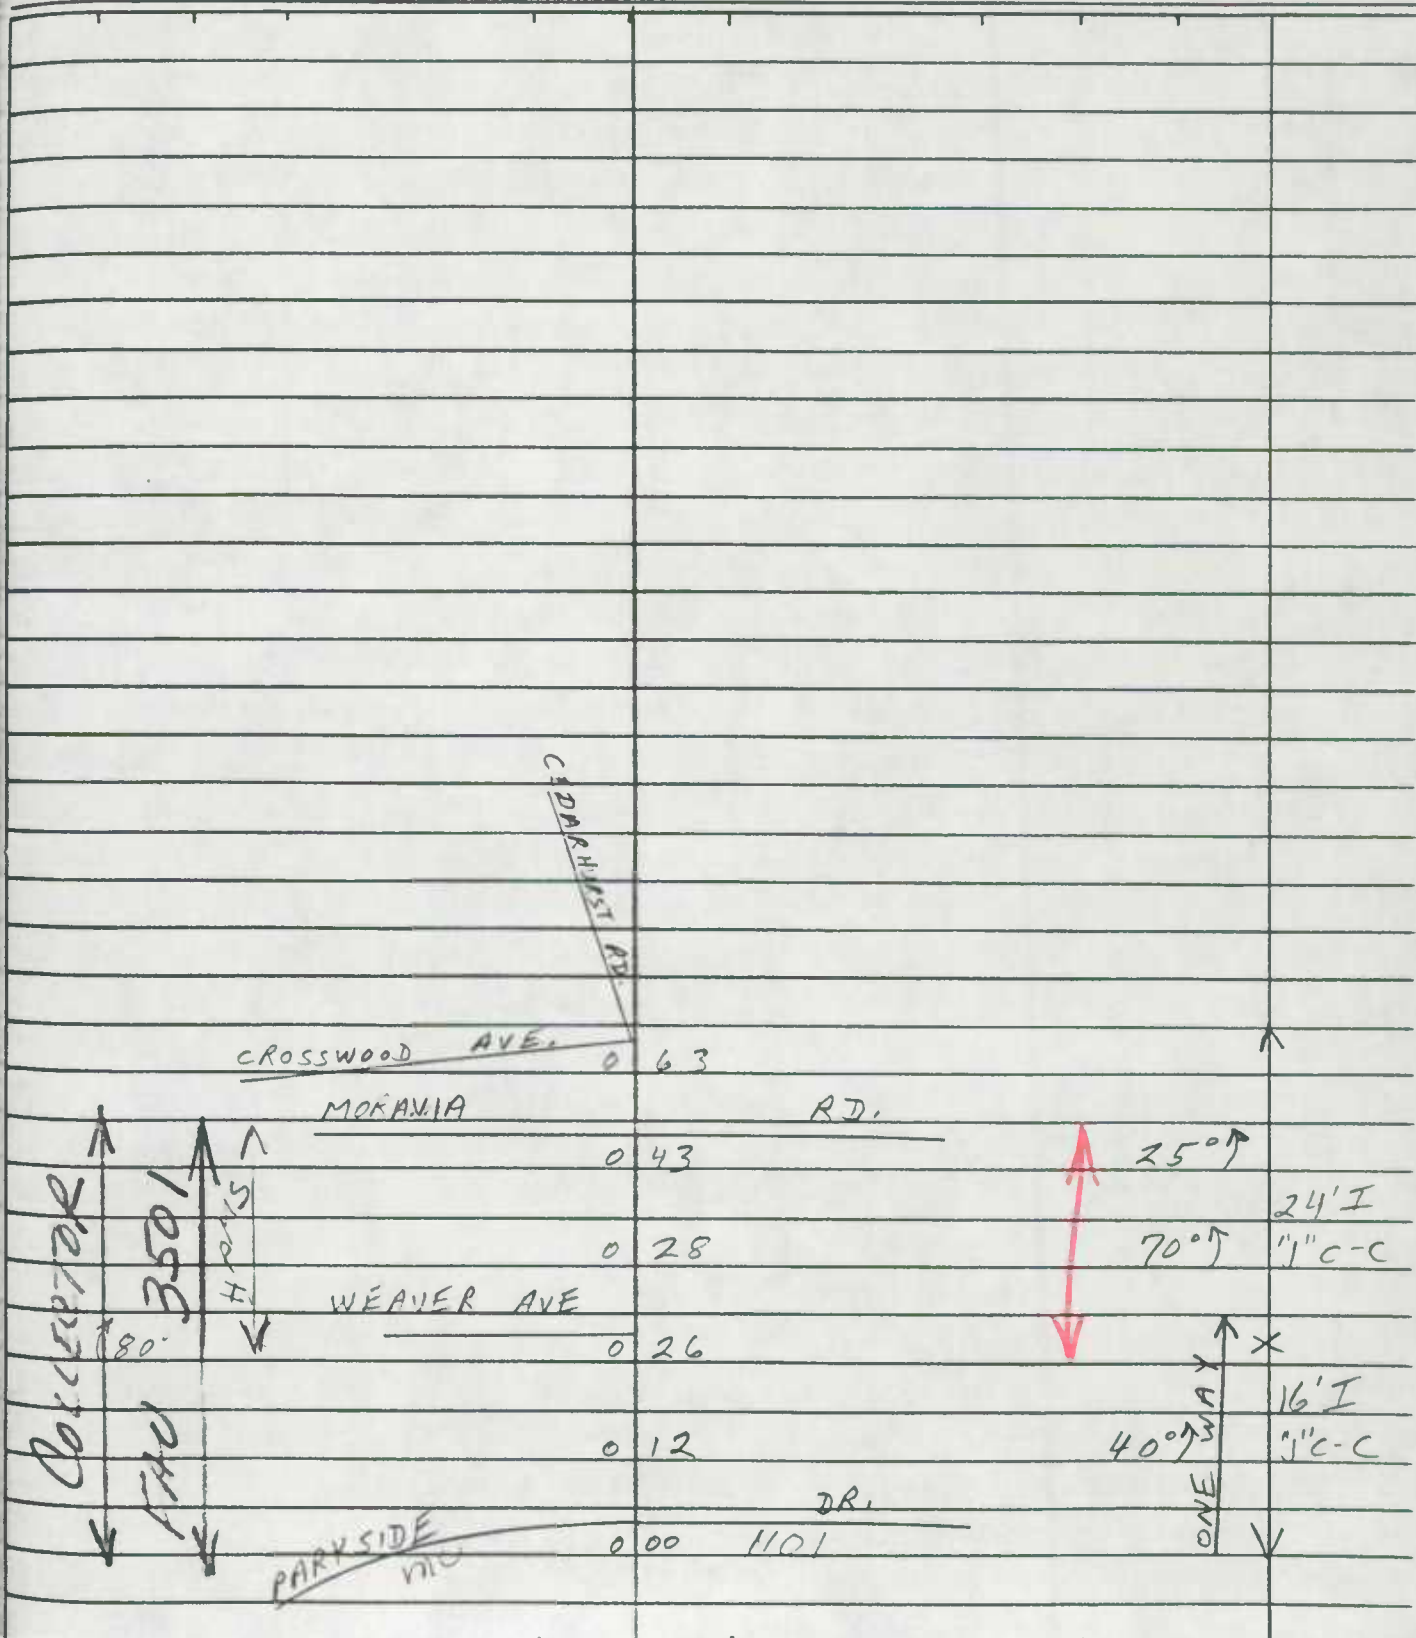 CEDARHURST RD.
CROSSWOOD AVE.
0 63
MORAVIA RD.
0 43 25°
24' I
0 28 70° "J" C-C
WEAVER AVE
0 26 X
16' I
0 12 40° "J" C-C
ONE WAY
PARKSIDE DR.
0 00 1101
COLLECTOR
80'
FAU 3501
HPMS